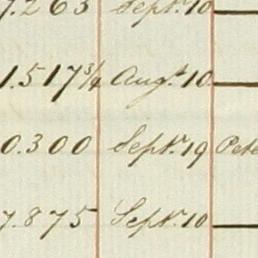 7.263 Septr. 10
1.517¾ Augt. 10
0.300 Septr. 19 Pete
7.875 Septr. 10